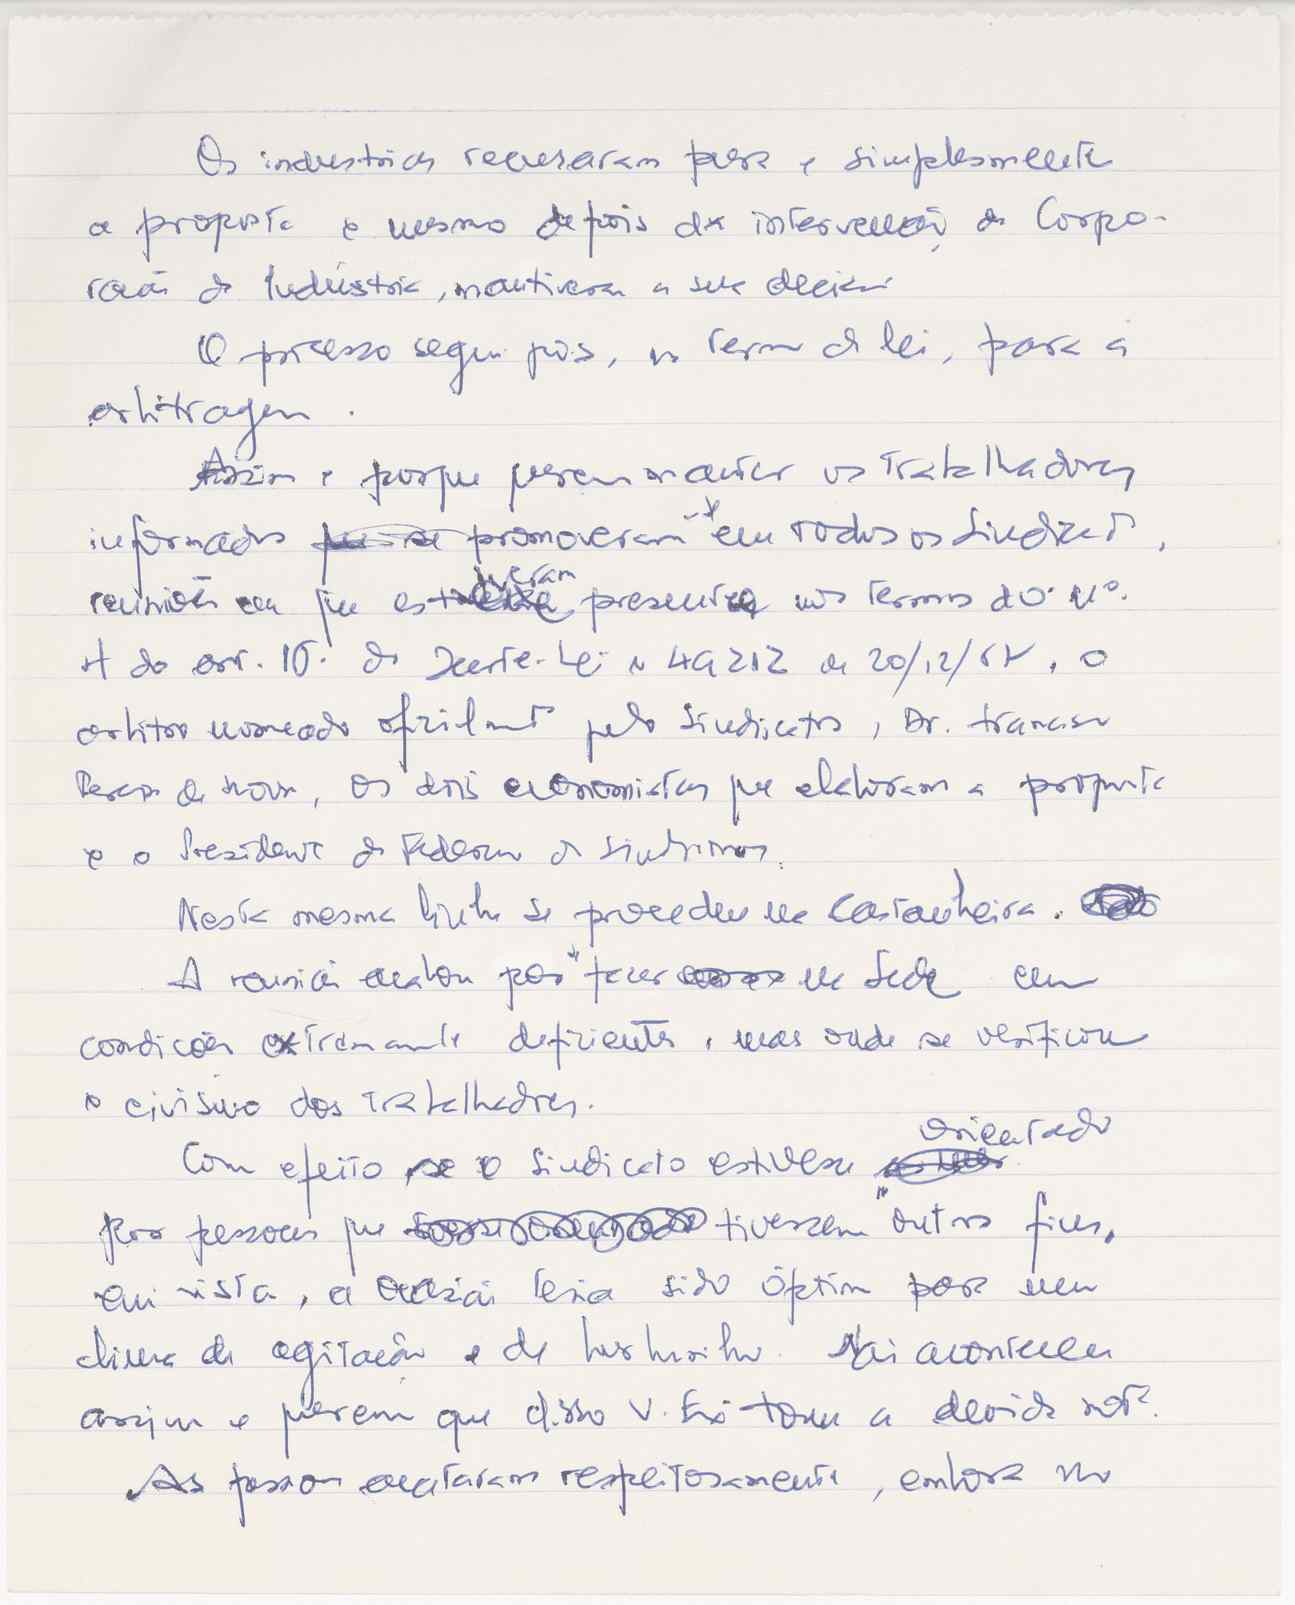 Os industriais recusaram pura e simplesmente
a proposta e mesmo depois da intervenção da Corpo-
ração da Indústria, mantiveram a sua decisão
O processo segue pois, nos termos da lei, para a
arbitragem.
Assim e porque querem manter os trabalhadores
informados promoveram em todos os Sindicatos,
reuniões em que estiveram presentes nos termos do nº.
do art. 15º do Decreto-Lei nº 49212 de 20/12/69, o
arbitro nomeado oficialmente pelo Sindicatos, Dr. Francisco
Pereira de Moura, os dois economistas que elaboraram a proposta
e o Presidente da Federação de Sindicatos.
Nesta mesma linha se procedeu na Castanheira.
A reunião acabou por se fazer na Sede em
condições extremamente deficientes, mas onde se verificou
o civismo dos trabalhadores.
Com efeito se o Sindicato estivesse orientado
por pessoas que tivessem outros fins,
em vista, a ocasião teria sido óptima para um
clima de agitação e de burburinho. Não aconteceu
assim e querem que disso V. Exª tome a devida nota.
As pessoas acataram respeitosamente, embora no